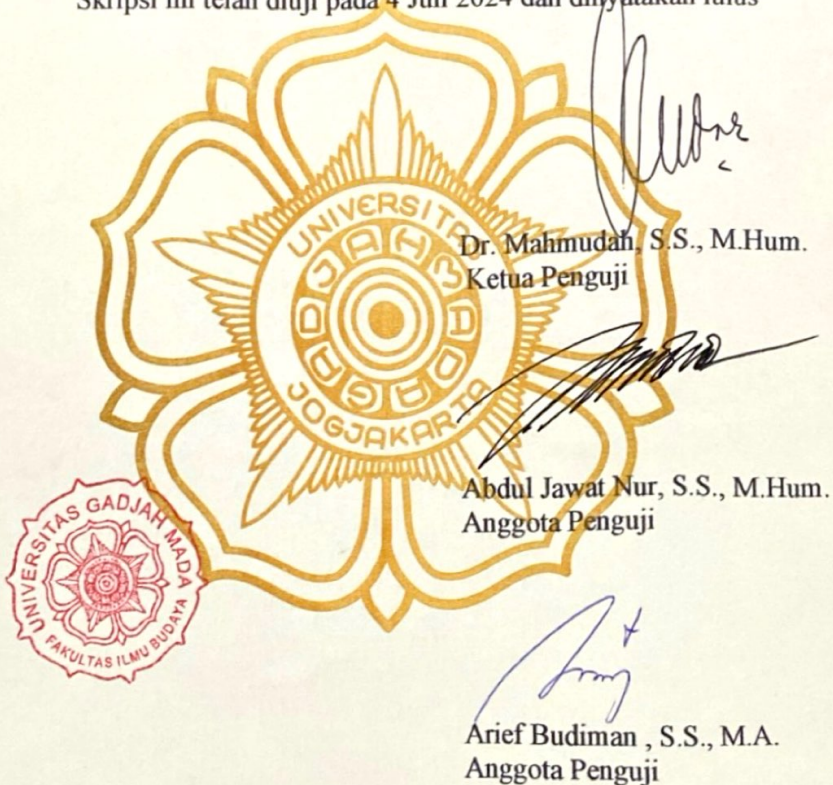 Skripsi ini telah diuji pada 4 Juli 2024 dan dinyatakan lulus
UNIVERSITAS
GADJAH MADA
JOGJAKARTA
Dr. Mahmudah, S.S., M.Hum.
Ketua Penguji
Abdul Jawat Nur, S.S., M.Hum.
Anggota Penguji
UNIVERSITAS GADJAH MADA
FAKULTAS ILMU BUDAYA
Arief Budiman , S.S., M.A.
Anggota Penguji